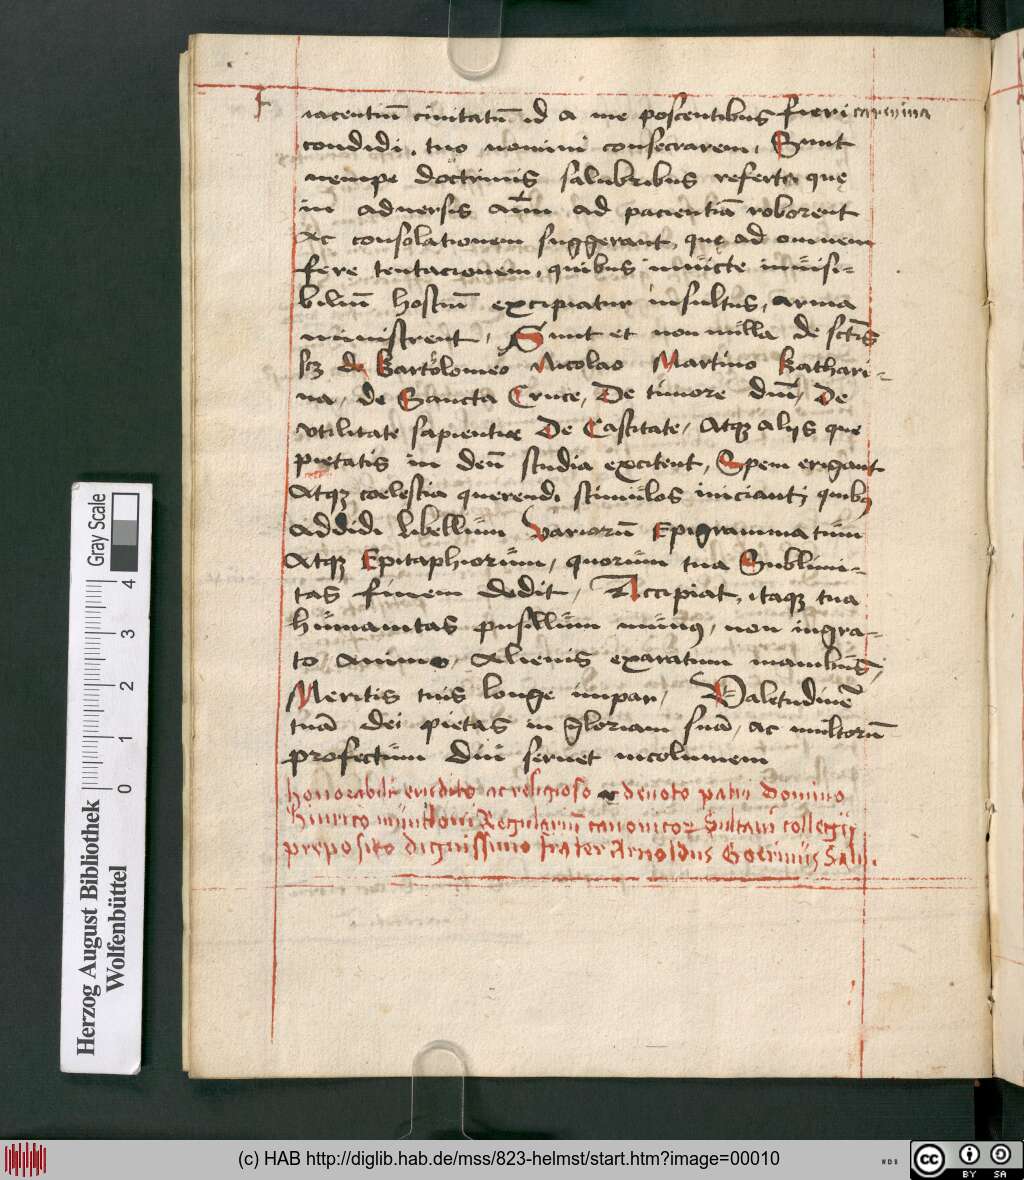 iacentiū ciuitatū id a me poscentibus fieri carmina
condidi, tuo nomini consecrarem, Sunt
nempe doctrinis salubribus referta quę
in aduersis aīm ad pacientiā roborent
Ac consolationem suggerant, quę ad omnem
fere tentacionem, quibus inuicte inuisi-
biliū hostiū excipiatur insultus, arma
ministrent, Sunt et non nulla de sctis
scz de Bartolomeo Nicolao Martino Kathari-
na, de Sancta Cruce, De timore dni, De
vtilitate sapientiae De Castitate, Atqz aliis que
pietatis in deū studia excitent, Spem erigant
Atqz coelestia querendi stimulos iniciant, quibus
Addidi libellum variorū Epigrammatum
Atqz Epitaphiorum, quorum tua Sublimi-
tas finem dedit, Accipiat, itaqz tua
humanitas pusillum munus, non ingra-
to, animo, alienis exaratum manibus,
Meritis tuis longe impar, Valetudinē
tuā dei pietas in gloriam suā, ac multorū
profectum diu seruet incolumem
honorabili erudito ac religioso ac deuoto patri domino
hinrico Regulariū canonicor Sultani collegii
preposito dignissimo frater Arnoldus
Gray Scale
4
3
2
1
0
Herzog August Bibliothek
Wolfenbüttel
(c) HAB http://diglib.hab.de/mss/823-helmst/start.htm?image=00010
WDB
cc
BY
SA